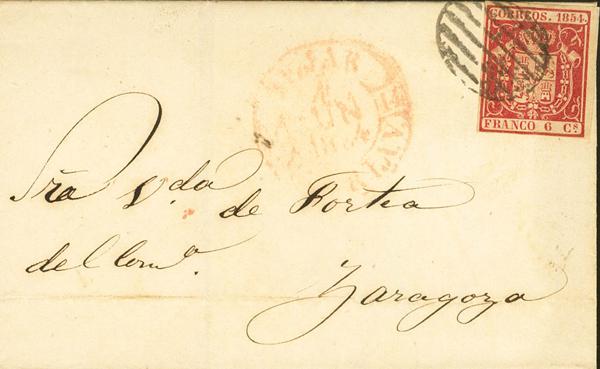 CORREOS. 1854.
FRANCO 6 Cs
JUN
Sra V.da de Fortea
del Com.o
Zaragoza